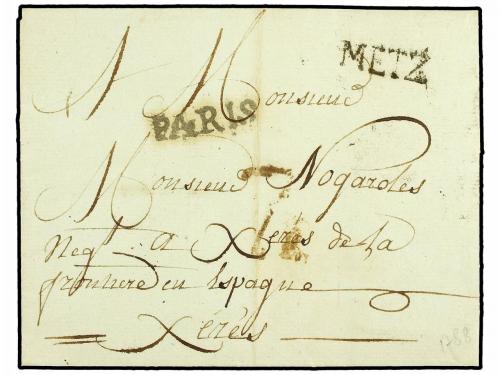 A Monsieur
METZ
PARIS
Monsieur Nogaroles
Neg.t a Xeres de la
frontiere en Espagne
Xérès
1788